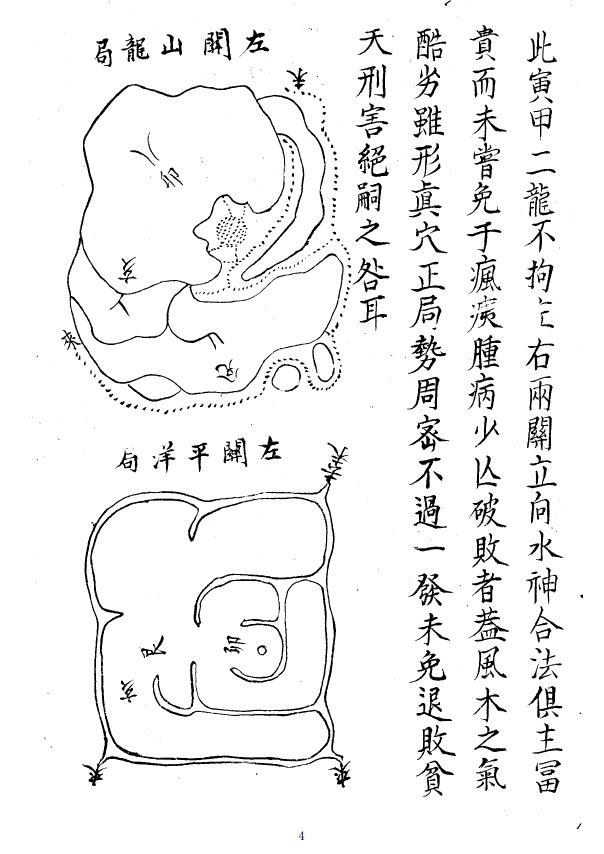 此寅甲二龍不拘左右兩關立向水神合法俱主冨
貴而未嘗免于瘋痰腫病少亡破敗者蓋風木之氣
酷劣雖形眞穴正局勢周密不過一發未免退敗貧
夭刑害絕嗣之咎耳
左關山龍局
來
卯
亥
來
左關平洋局
來
卯
艮
亥
來
來
4